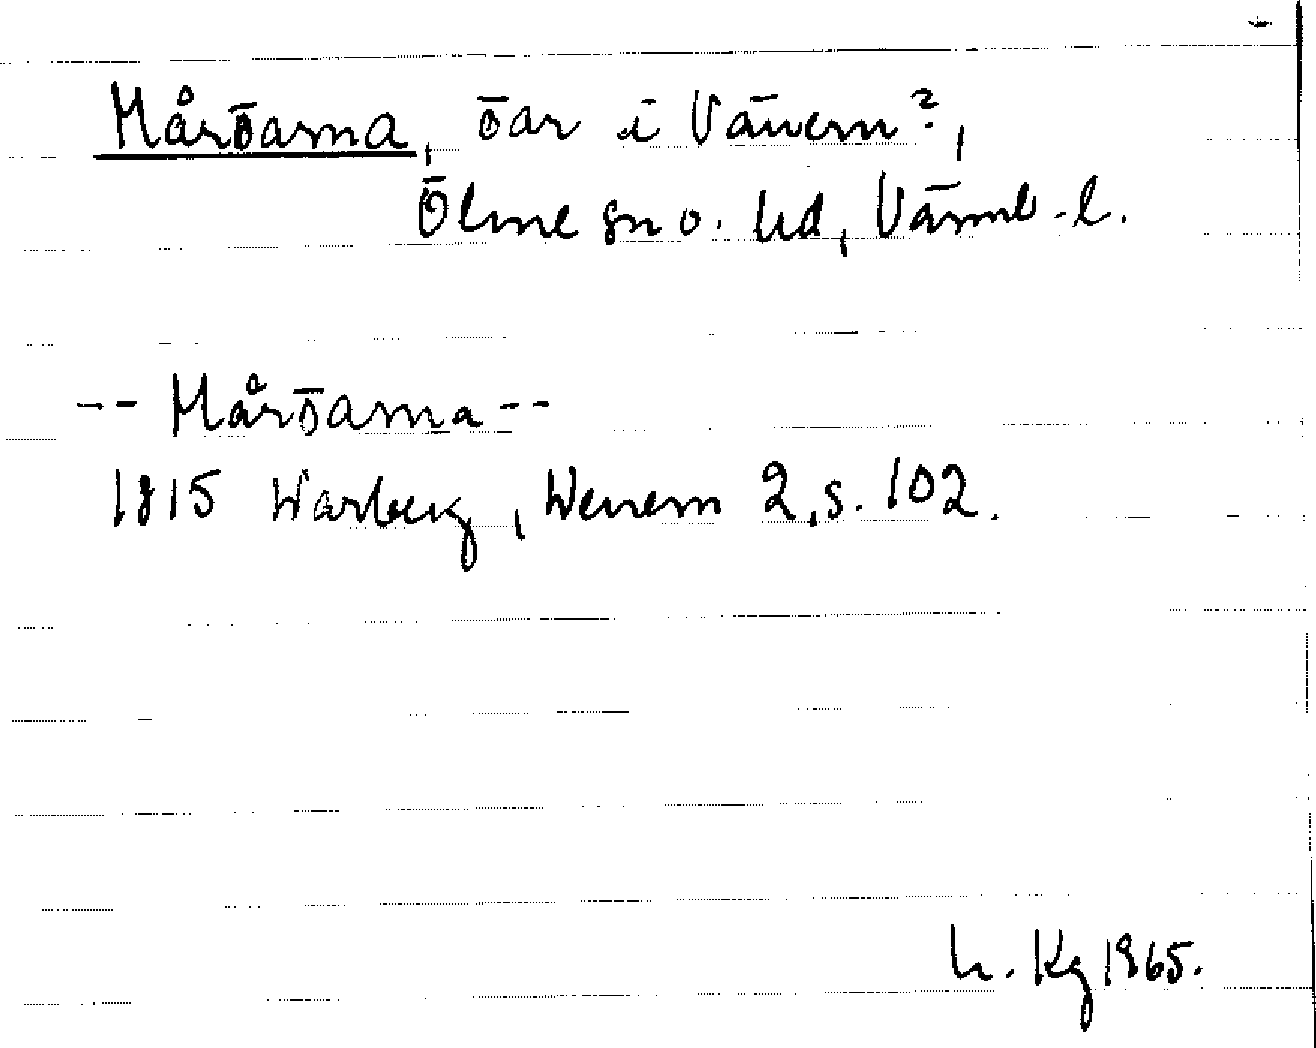 Måröarna, öar i Vänern?,
Ölme sn o. hd, Värml. l.
-- Måröarna --
1815 Warberg, Wenern 2, s. 102.
L. Kg 1965.